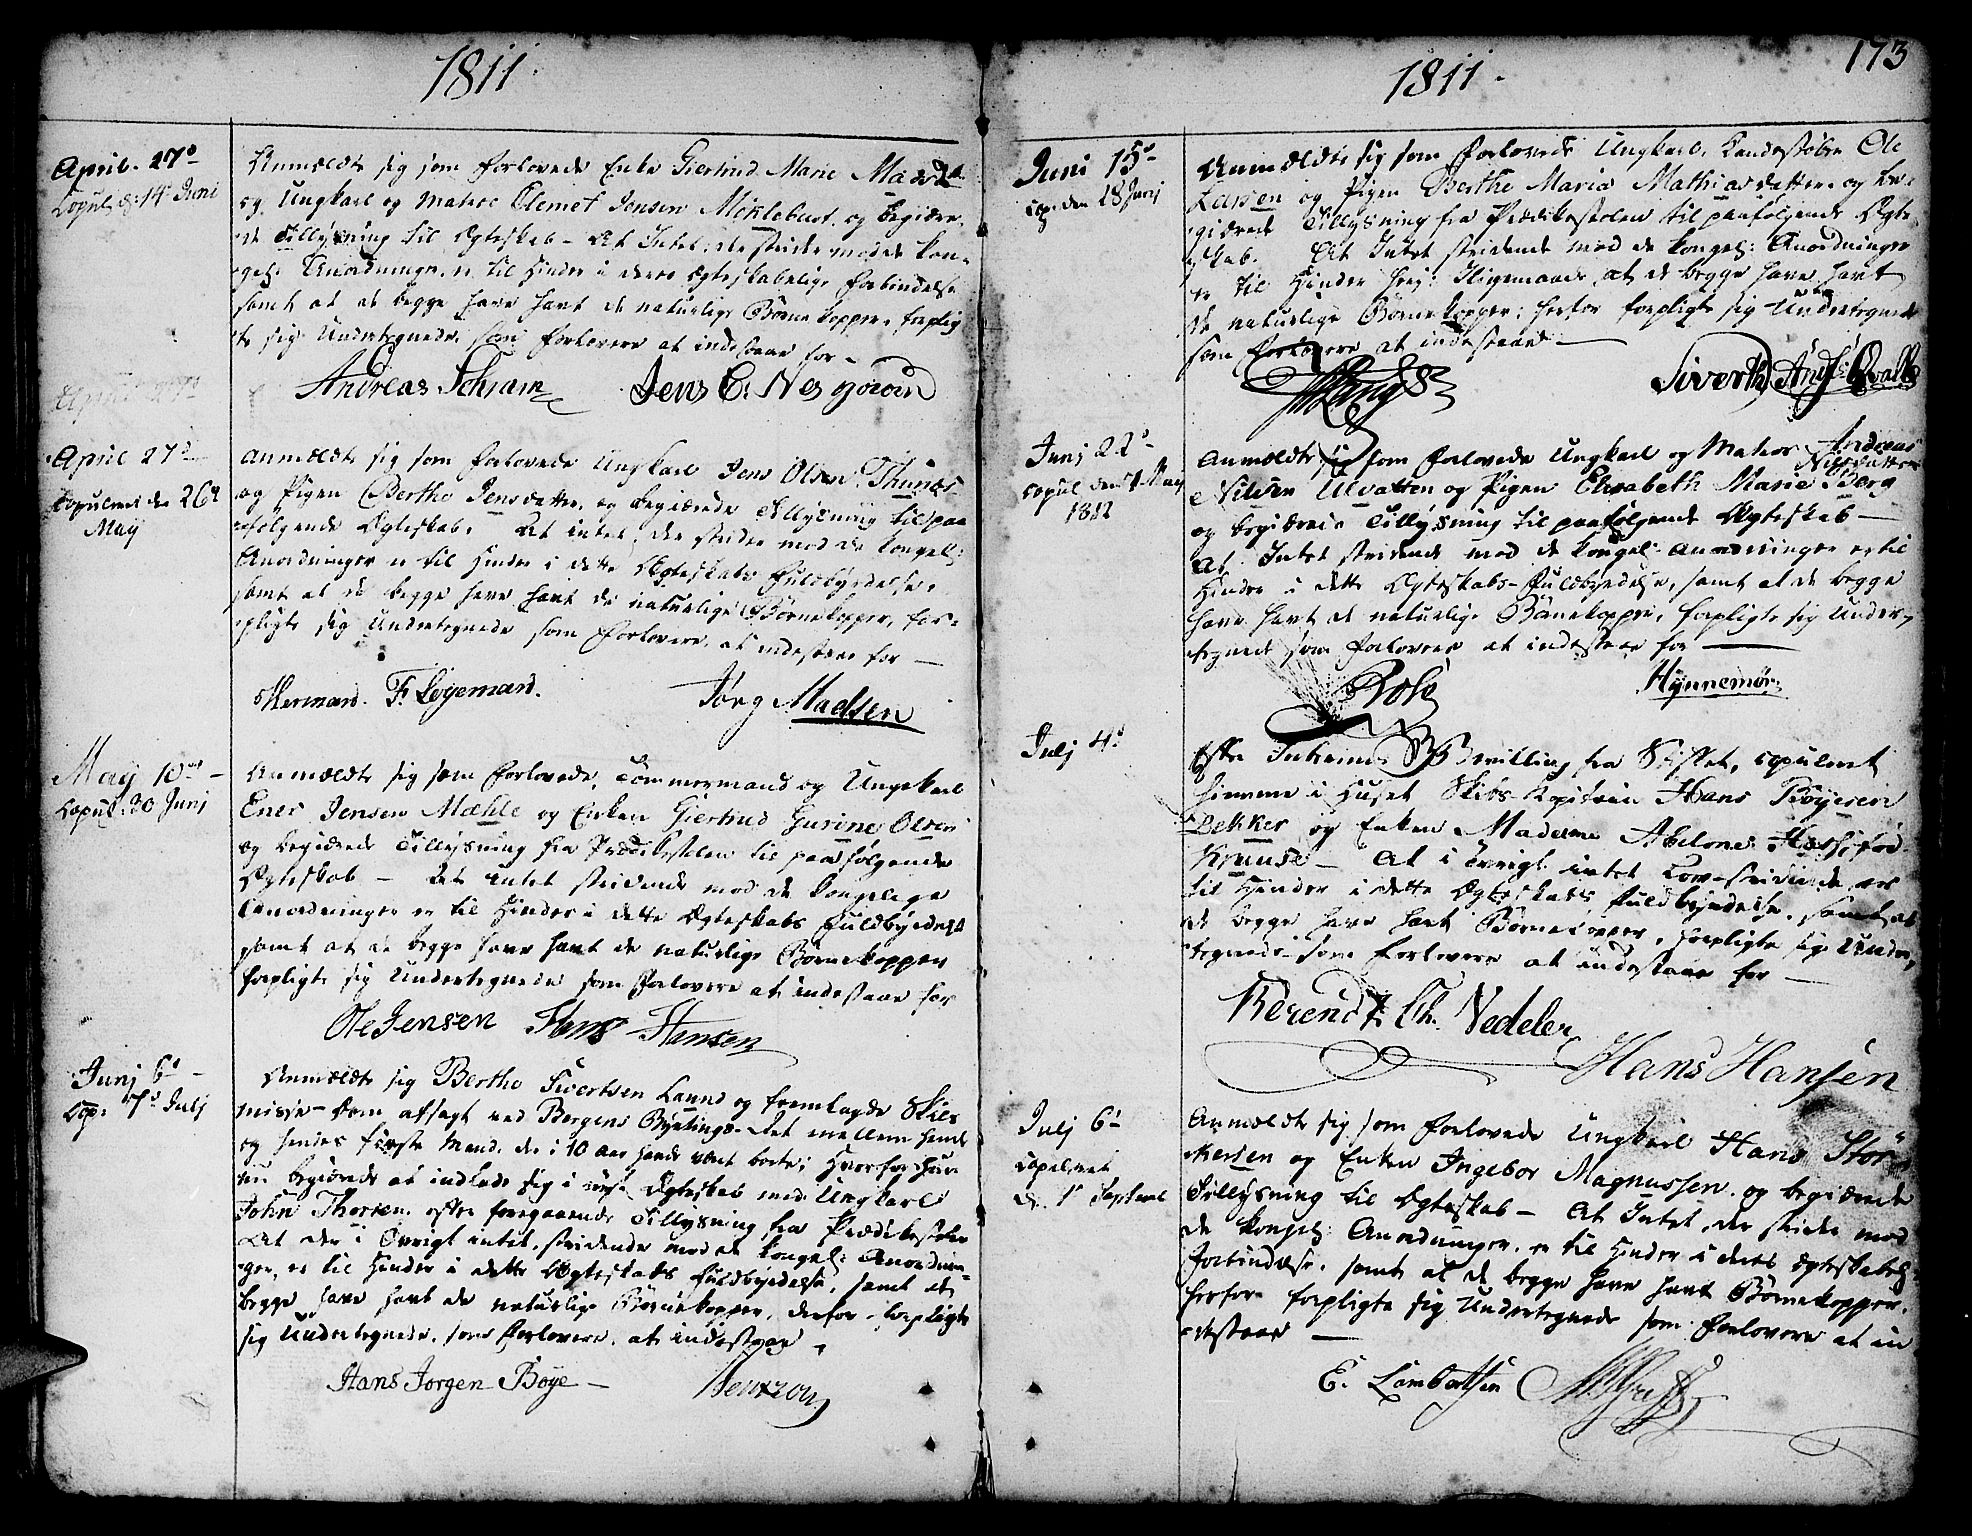 1811.
April. 27de
Copul: d: 14de Junj
Anmældte sig som forlovede Enke Giertrud Marie Madsd.
og Ungkarl og Matros Clemet Jensen Mèklebust. og begiære-
de Tillysning til Ægteskab - At Intet, der strider mod de kon-
gel: Anordninger, er til Hinder i deres Ægteskabelige forbindelse
samt at de begge have havt de naturlige Börnekopper, forplig
te sig Undertegnede, som forlovere at indestaae for -
Andreas Schram Jens C. Nesgaard
April 27de
April 27de
Copuleret den 26de
May
Anmældte sig som forlovede Ungkarl Jens Olsen Thunæs
og Pigen Berthe Jensdatter, og begiærede Tillysning til paa
følgende Ægteskab. At intet, der strider mod de kongel:
Anordninger er til Hinder i dette Ægteskabs Fuldbyrdelse,
samt at de begge have havt de naturlige Börnekopper, for-
pligte sig Undertegnede som Forlovere, at indestaae for -
Herman. F. Løyeman. Jørg Madsen
May 10de -
Copul: 30 Junj
Anmældte sig som forlovede, Tömmermand og Ungekarl
Ener Jensen Mæhle og Enken Giertrud Gurine Olsen
og begiærede Tillysning fra Prædikestolen til paafølgende
Ægteskab - At intet stridende mod de kongelige
Anordninger er til Hinder i dette Ægteskabs Fuldbyrdelse
samt at de begge have havt de naturlige Börnekopper
forpligte sig Undertegnede som Forlovere at indestaae for
Ole Jensen Hans Hansen
Junj 6de -
Cop: 7de Julj
Anmældte sig Berthe Sivertsen Lund og fremlagde Skils
misse-Dom afsagt ved Bergens Byetings-Ret mellem hende
og hendes første Mand, der i 10 aar havde vært borte; Hvorfor hun
nu begiærede at indlade sig i nyt Ægteskab med Ungkarl
John Thorsen. efter foregaaende Tillysning fra Prædikestolen
At der i Övrigt intet, stridende mod de kongel: Anordnin-
ger, er til Hinder i dette Ægteskabs Fuldbyrdelse, samt at de
begge have havt de naturlige Börnekopper, derfor forpligte
sig Undertegnede, som Forlovere, at indestaae.
Hans Jørgen Böye - Bentzon
1811.
173
Juni 15de
Cop: den 28 Junj
Anmældte sig som forlovede Ungkarl, Kandestøber Ole
Larsen og Pigen Berthe Maria Mathiasdatter, og be-
giærede Tillysning fra Prædikestolen til paafølgende Ægte-
skab. At Intet stridende mod de kongel: Anordninger
er til Hinder herj: Iligemaade, at de begge have havt
de naturlige Börnekopper; herfor forpligte sig Undertegnede
som forlovere at indestaae -
Siverth And: Qvalle
Junj 22de
Copul den 1 May
1812
Anmældte sig som forlovede Ungkarl og Matros Andreas
Nilsen Ulvatten og Pigen Elisabeth Marie Nilsdatter Berg
og begiærede Tillysning til paafølgende Ægteskab -
At Intet stridende mod de kongel: Anordninger er til
Hinder i dette Ægteskabs-Fuldbyrdelse, samt at de begge
have havt de naturlige Börnekopper, forpligte sig Under-
tegnede som forlovere at indestaae for -
Rosè Hynnemör:
Julj 4de
Efter Intrem: Bevilling fra Stiftet, copuleret
hiemme i Huset Skibs-Capitain Hans Böyesen
Dekker og Enken Madame Abelone Hass, föd
Kruuse - At i övrigt intet Lov-stridende er
til Hinder i dette Ægteskabs Fuldbyrdelse, samt at
de begge have havt Börnekopper, forpligte sig Under-
tegnede som Forlovere at indestaae for -
Berend Z. Ch. Vedeler
Hans Hansen
Julj 6de
copuleret
d. 1 Septembr
Anmældte sig som forlovede Ungkarl Hans Stör-
kersen og Enken Ingebor Magnussen. og begiærede
Tillysning til Ægteskab - At Intet, der strider mod
de kongel: Anordninger, er til Hinder i deres ægteskabel:
Forbindelse, samt at de begge have havt Börnekopper,
herfore forpligte sig Undertegnede som Forlovere at in
destaae -
E. Lambertsen